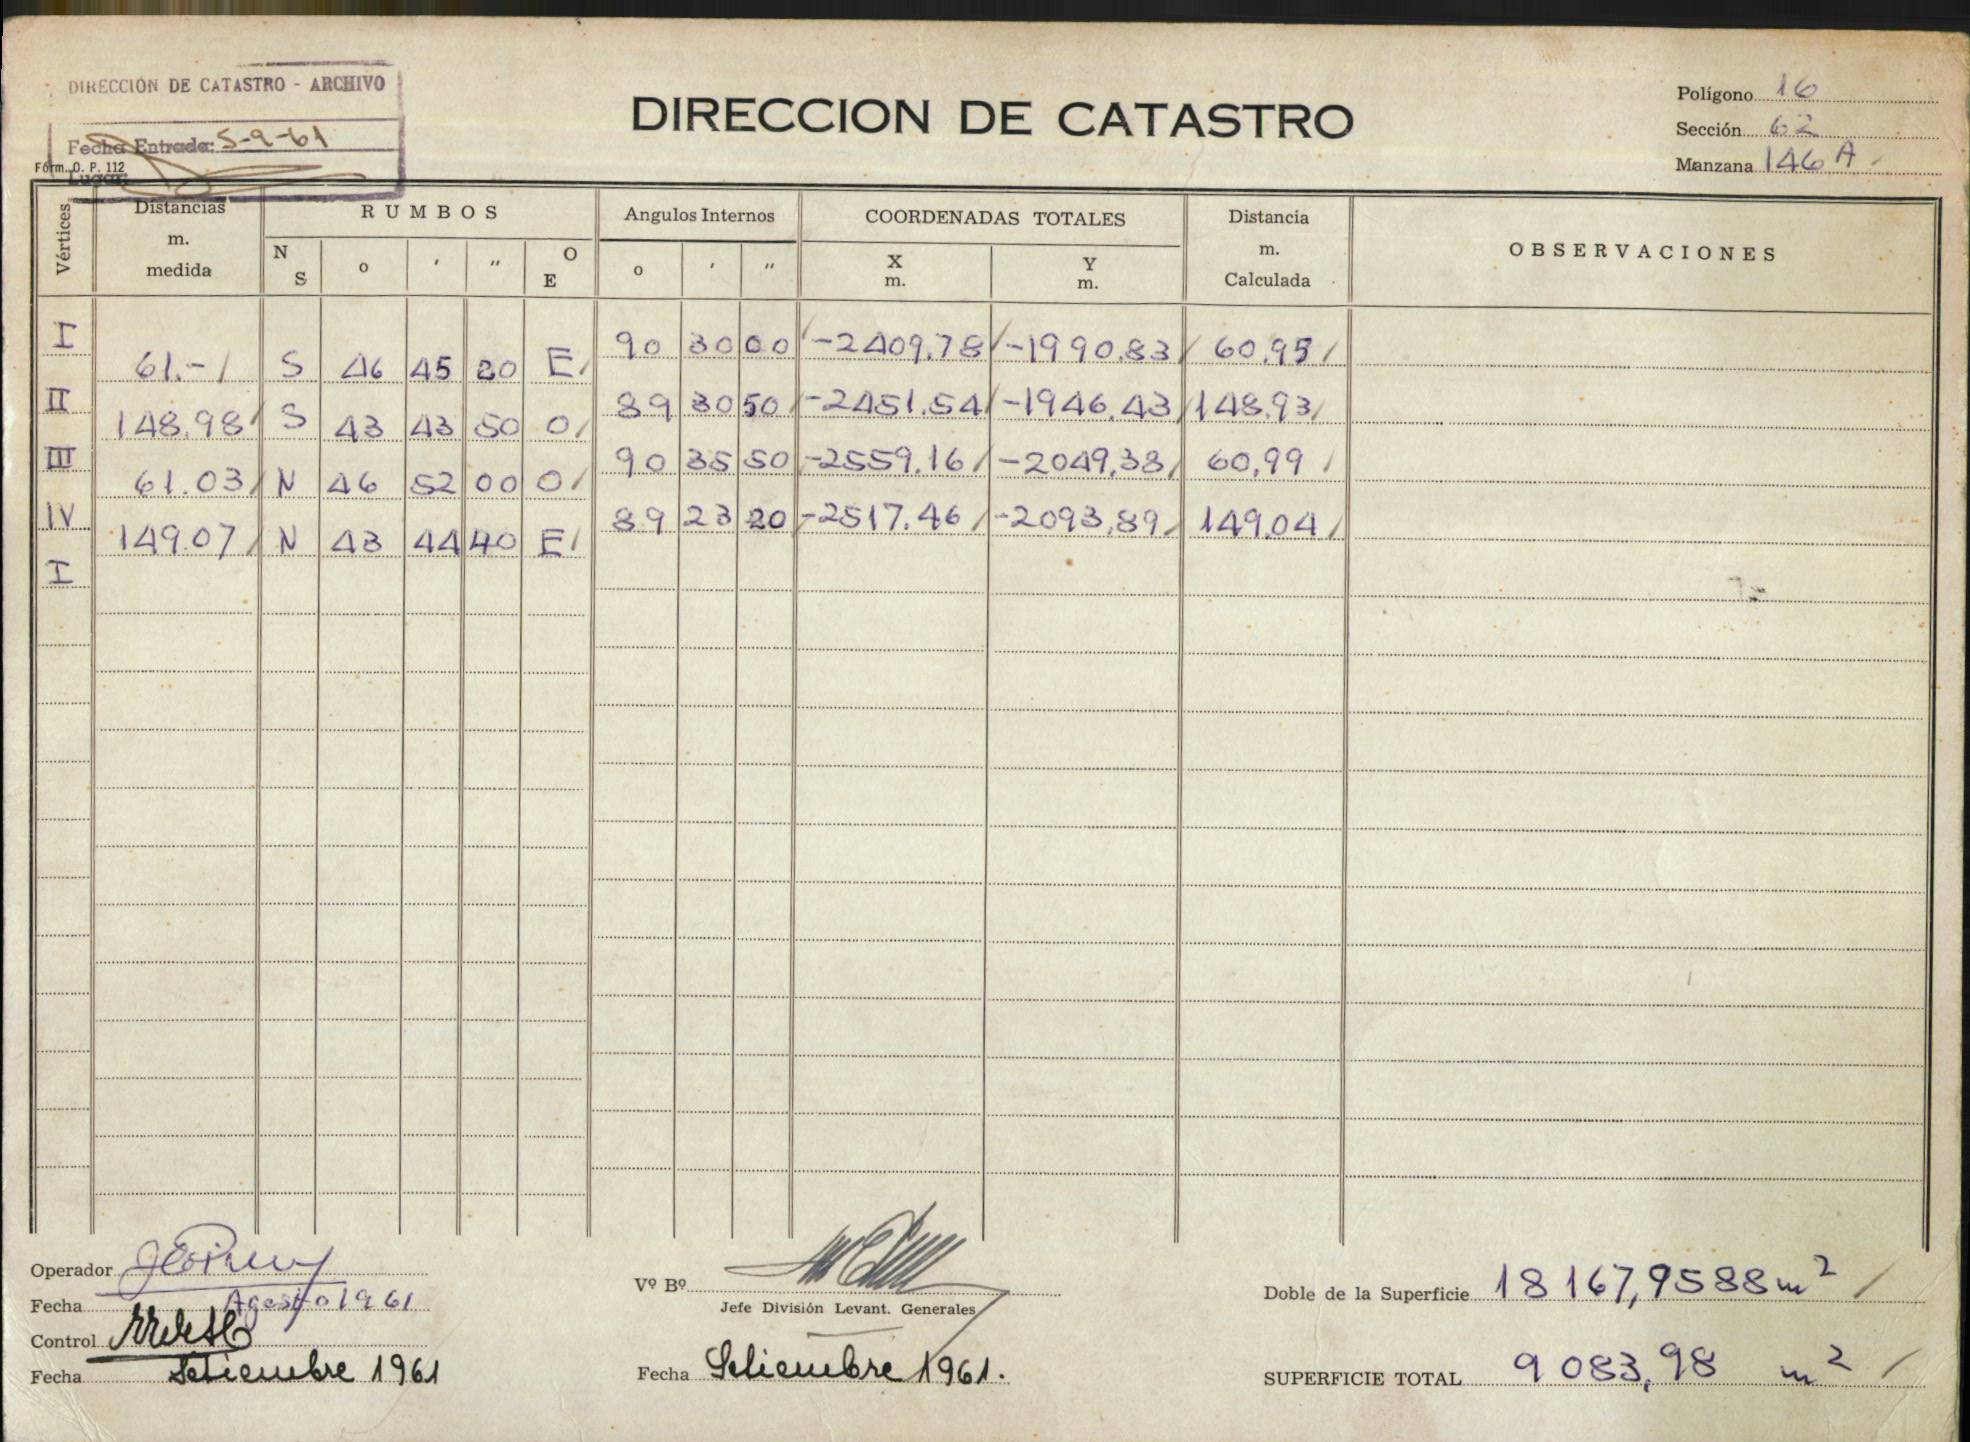 DIRECCION DE CATASTRO - ARCHIVO
Fecha Entrada: 5-9-61
Lugar:
Form. O. P. 112
DIRECCION DE CATASTRO
Polígono 16
Sección 62
Manzana 146 A
Vértices Distancias m. medida RUMBOS Angulos Internos COORDENADAS TOTALES Distancia m. Calculada OBSERVACIONES
N S o ' " O E o ' " X m. Y m.
I 90 30 00 -2409.78 -1990.83 60,95
61.- S 46 45 20 E
II 89 30 50 -2451.54 -1946.43 148.93
148.98 S 43 43 50 O
III 90 35 50 -2559.16 -2049.38 60,99
61.03 N 46 52 00 O
IV 89 23 20 -2517.46 -2093,89 149.04
149.07 N 43 44 40 E
I
Operador
Fecha Agosto 1961
Control
Fecha Setiembre 1961
Vº Bº
Jefe División Levant. Generales
Fecha Setiembre 1961.
Doble de la Superficie 18167,9588 m²
SUPERFICIE TOTAL 9083,98 m²